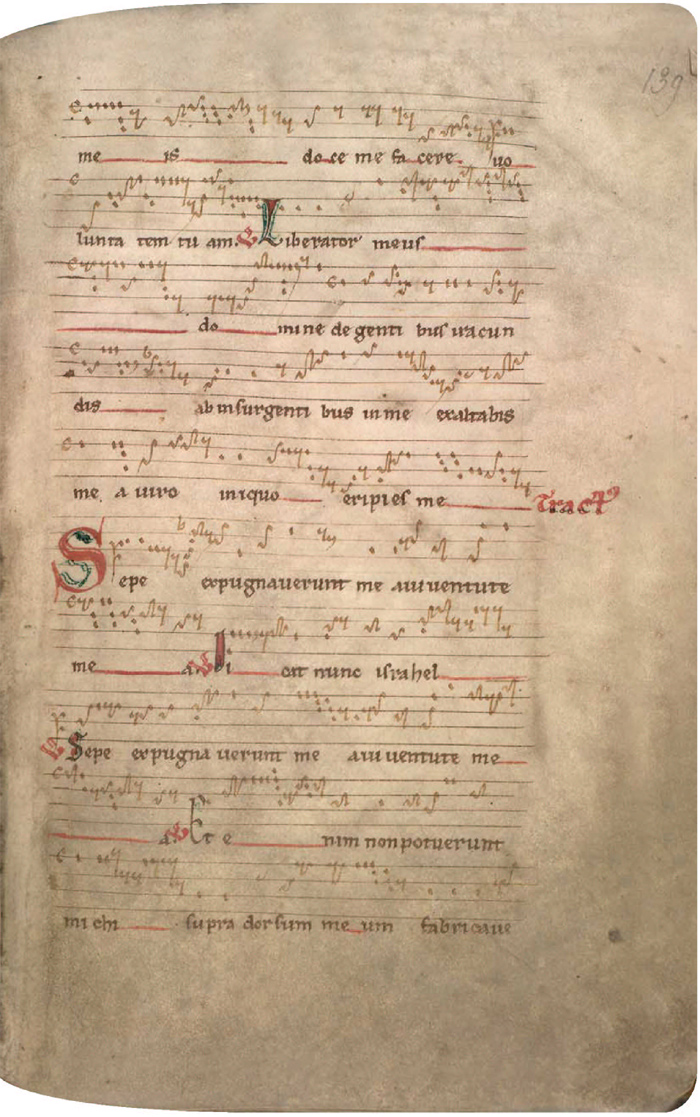 139
me is do ce me fa cere uo
lunta tem tu am. V Liberator meus
do mine de genti bus iracun
dis ab insurgenti bus in me exaltabis
me a uiro iniquo eripies me Tract9
Sepe expugnauerunt me a iuuentute
me a. V Di cat nunc israhel
V Sepe expugna uerunt me a iuuentute me
a. V Et e nim non potuerunt
mi chi supra dorsum me um fabricaue